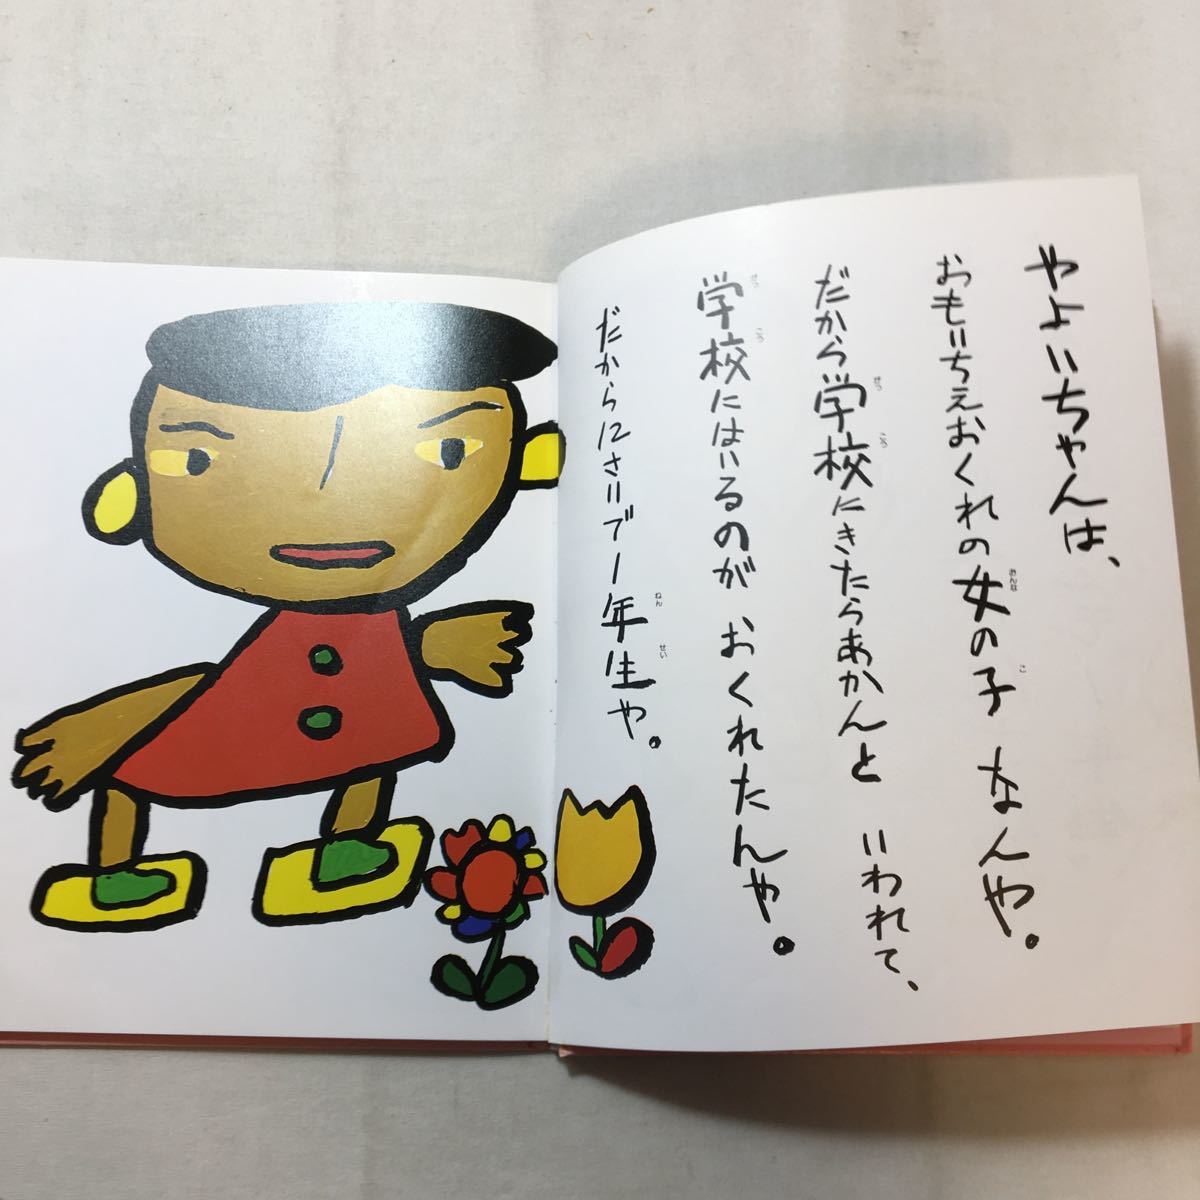 やよいちゃんは、
おんな こ
おもいちえおくれの女の子 なんや。
がっ こう
だから学校にきたらあかんと いわれて、
がっ こう
学校にはいるのが おくれたんや。
ねん せい
だから12さいで1年生や。